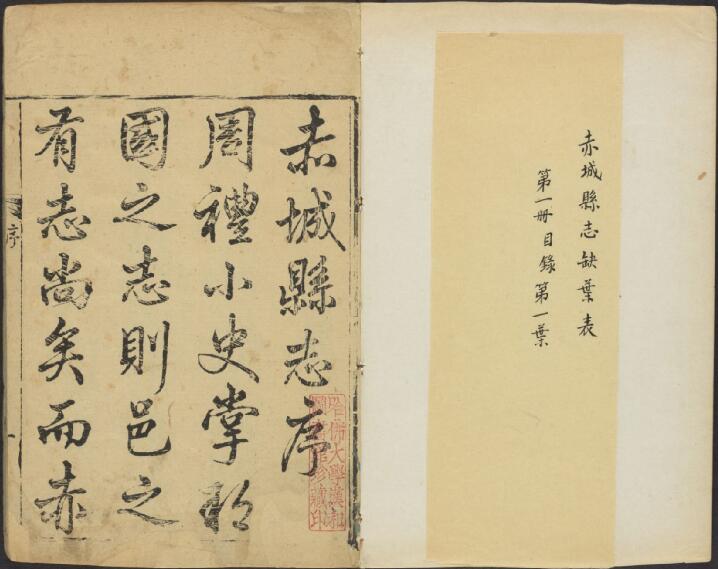 赤城縣志缺葉表
第一册目錄第一葉
赤城縣志序
周禮小史掌邦
國之志則邑之
有志尚矣而赤
序
哈佛大學漢和
圖書館珍藏印